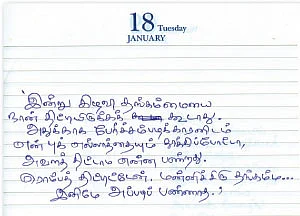 18 Tuesday
JANUARY
இன்று கிழவி தங்கம்மையை
நான் திட்டியிருக்கக் கூடாது.
அதுக்காக பேரிச்சம்படிக்காரனிடம்
என் புக் எல்லாத்தையும் தூக்கிப்போட்டா,
அவளத் திட்டாம என்ன பண்றது.
ரொம்பத் திட்டிட்டேன். மன்னிச்சிடு தங்கம்ம...
இனிமே அப்படிப் பண்ணாத.!